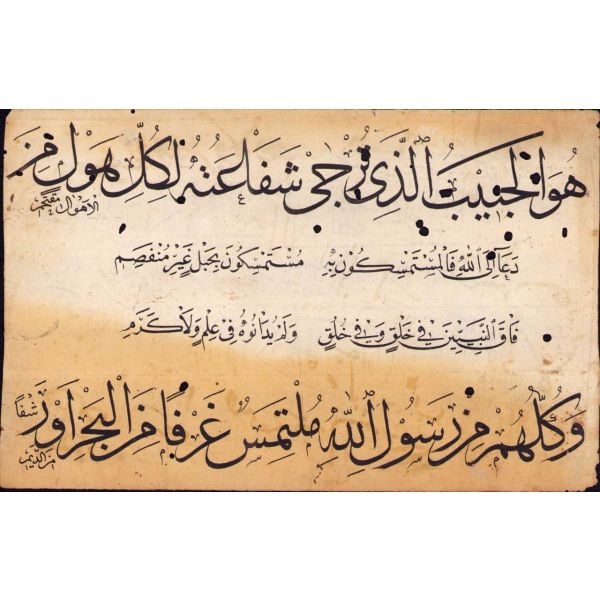 هُوَ الْحَبِيبُ الَّذِي تُرْجَى شَفَاعَتُهُ لِكُلِّ هَوْلٍ مِنَ
الْأَهْوَالِ مُقْتَحِمِ
دَعَا إِلَى اللّٰهِ فَالْمُسْتَمْسِكُونَ بِهِ مُسْتَمْسِكُونَ بِحَبْلٍ غَيْرِ مُنْفَصِمِ
فَاقَ النَّبِيِّينَ فِي خَلْقٍ وَفِي خُلُقٍ وَلَمْ يُدَانُوهُ فِي عِلْمٍ وَلَا كَرَمِ
وَكُلُّهُمْ مِنْ رَسُولِ اللّٰهِ مُلْتَمِسٌ غَرْفًا مِنَ الْبَحْرِ أَوْ رَشْفًا
مِنَ الدِّيَمِ